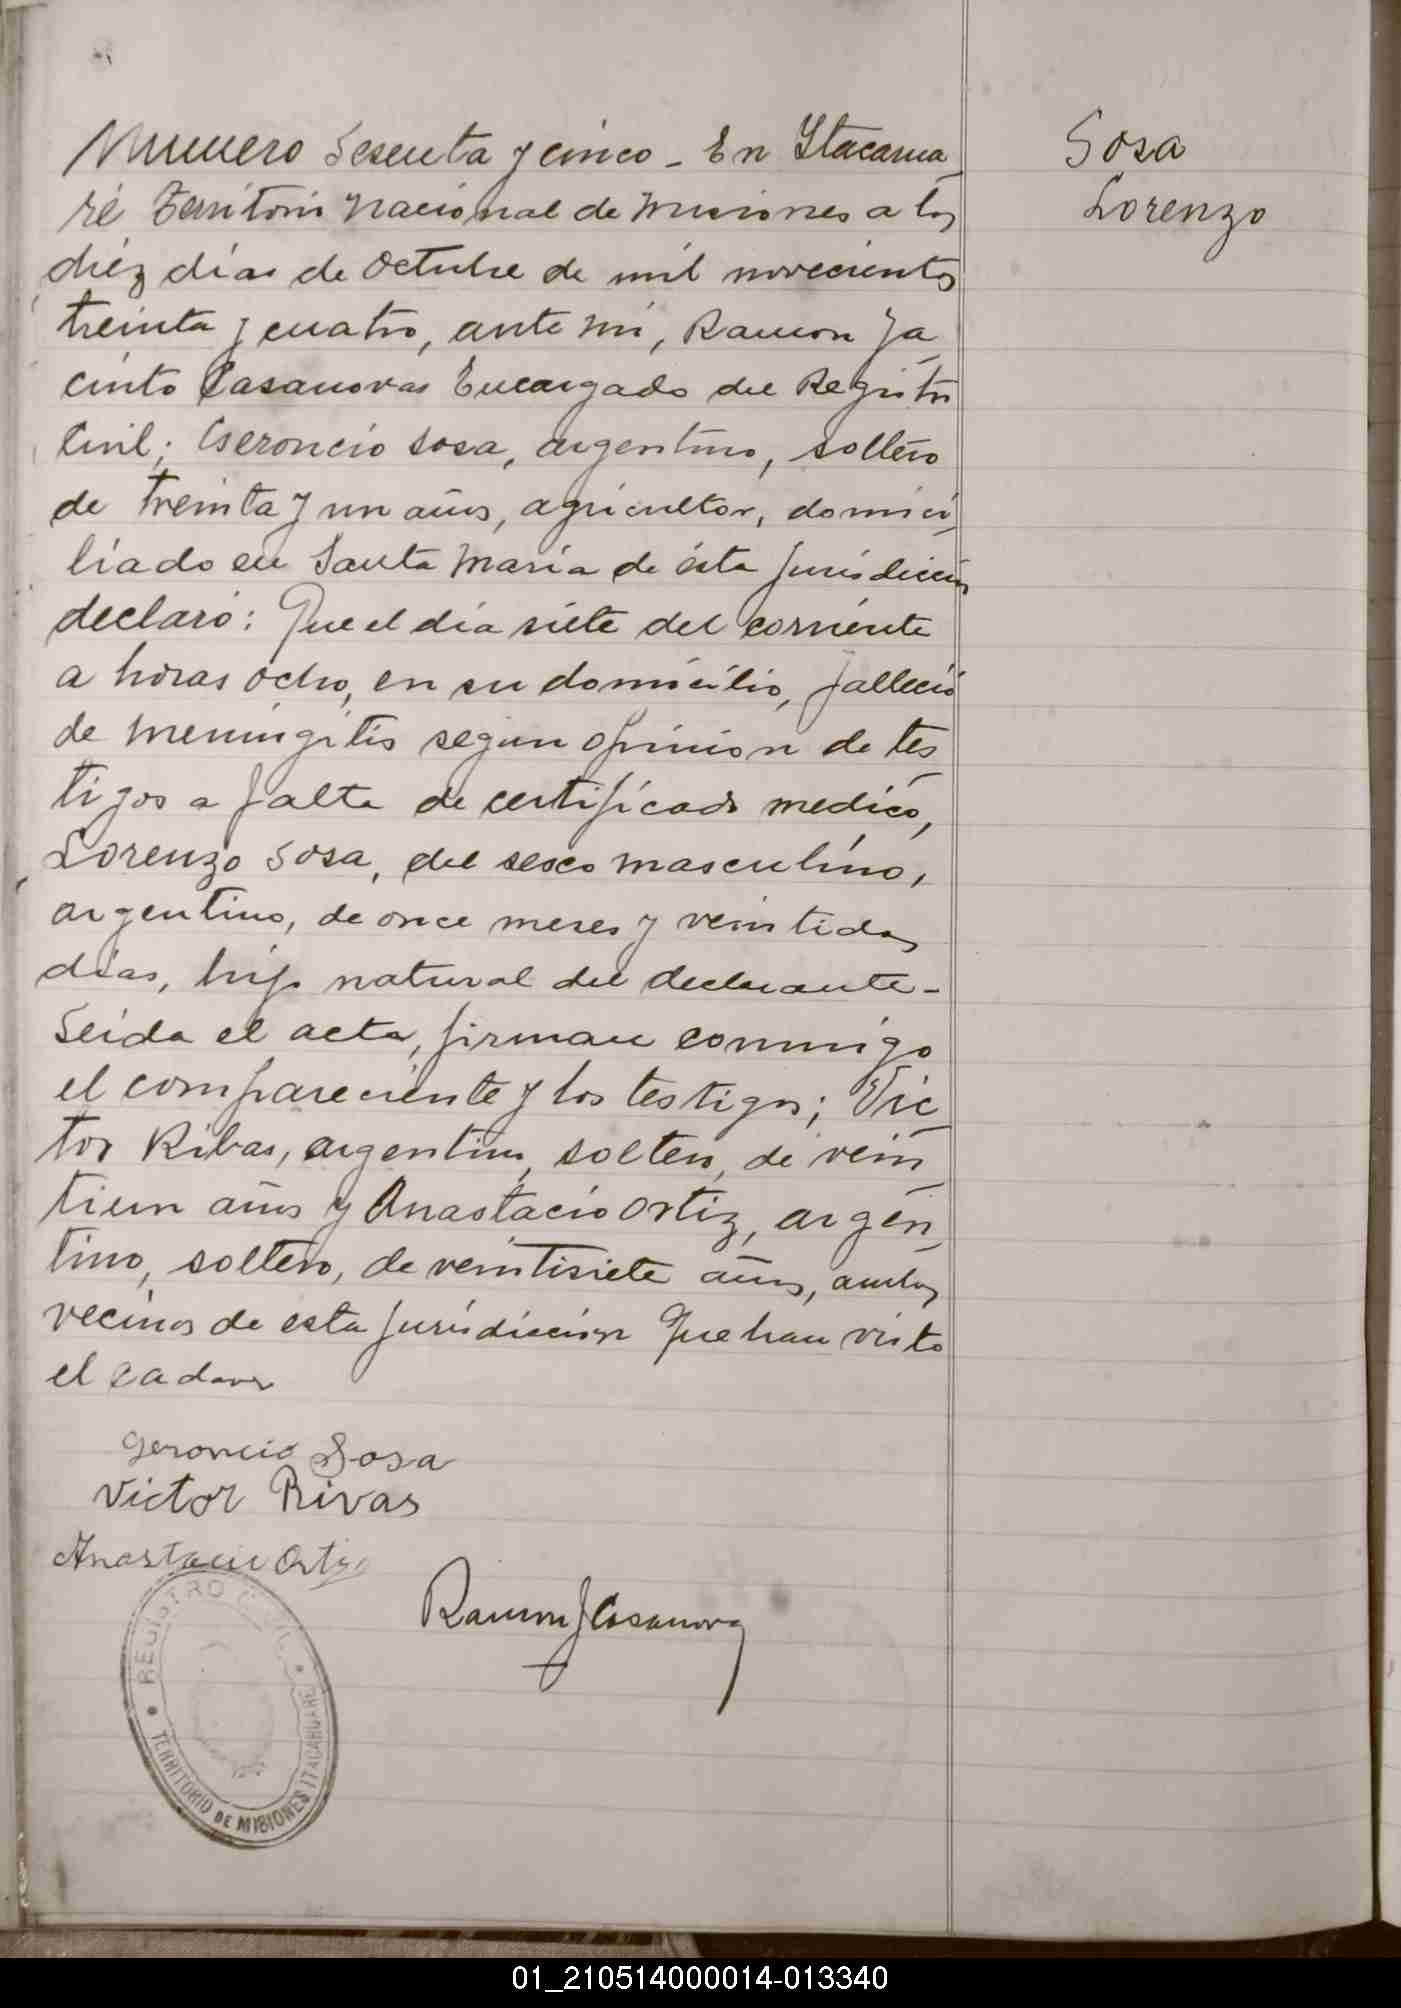 Numero Sesenta y cinco - En Itacarua
Sosa
Lorenzo
ré Territorio Nacional de Misiones a los
diéz dias de Octubre de mil novecientos
treinta y cuatro, ante mi, Ramon Ja
cinto Casanovas Encargado del Registro
Civil; Geroncio Sosa, argentino, soltero
de treinta y un años, agricultor, domici
liado en Santa Maria de ésta jurisdiccion
declaró: Que el dia siete del corriente
a horas ocho, en su domicilio, falleció
de meningitis segun opinion de tes
tigos a falta de certificado medico,
Lorenzo Sosa, del sexo masculino,
argentino, de once meses y veintidos
dias, hijo natural del declarante-
Leida el acta, firman conmigo
el compareciente y los testigos; Vic
tor Ribas, argentino, soltero, de vein
tiun años y Anastacio Ortiz, argen
tino, soltero, de veintisiete años, ambos
vecinos de esta jurisdiccion que han visto
el cadaver
Geroncio Sosa
Victor Rivas
Anastacio Ortiz
Ramon J Casanova
REGISTRO CIVIL
TERRITORIO DE MISIONES ITACARUARE
01_210514000014-013340